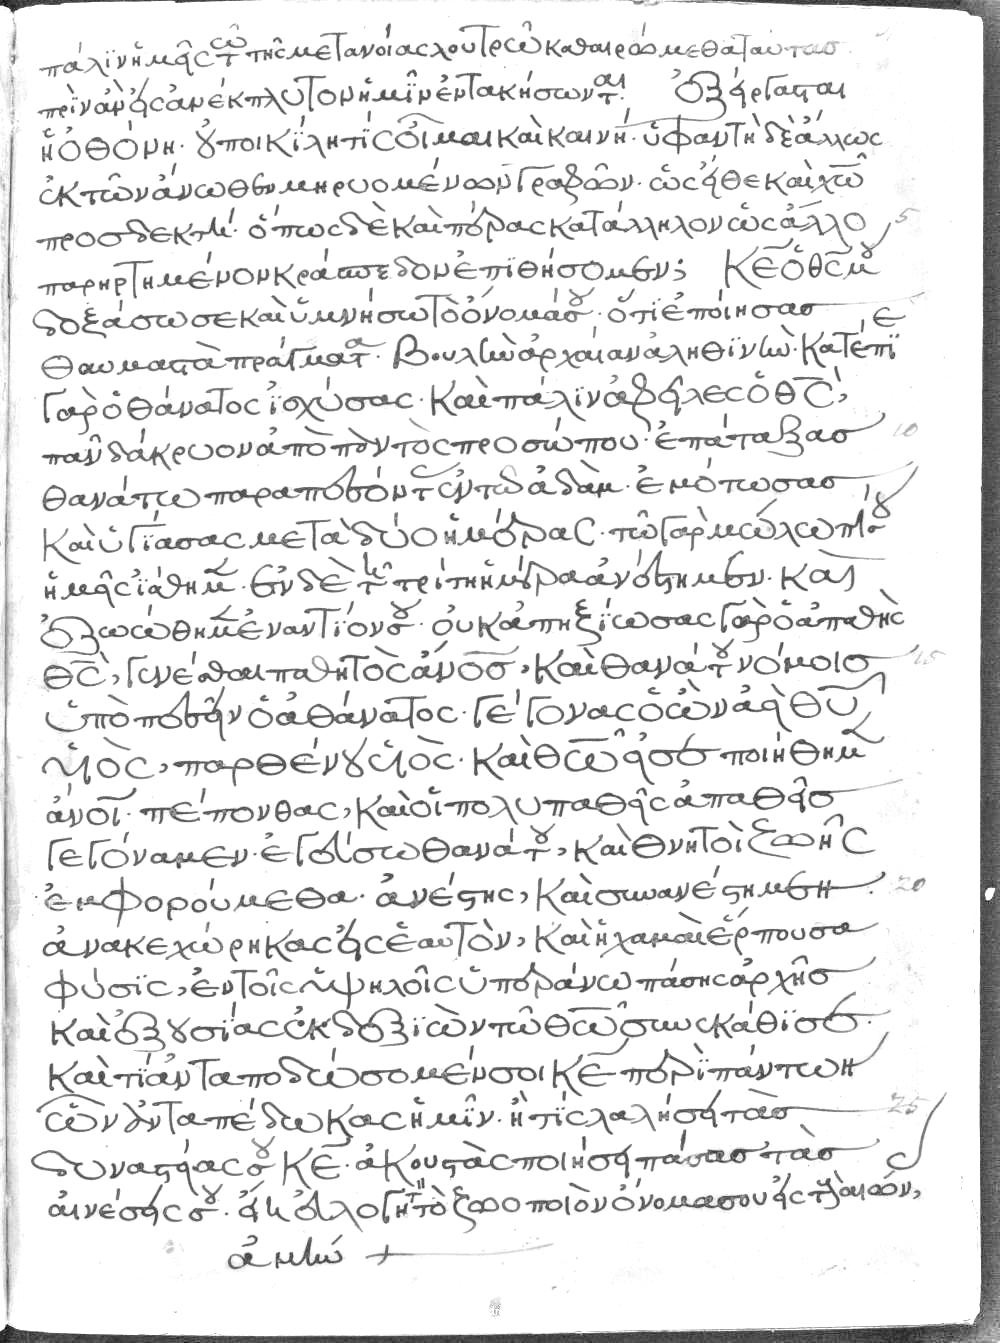 πάλιν ἡμᾶς τῷ τῆς μετανοίας λουτρῶ καθαιρόμεθα ταύτας
πρὶν ἂν εἰς ἀνέκπλυτον ἡμῖν ἐντακήσωνται. ἐξείργασται
ἡ ὀθόνη. οὐ ποικίλη τίς ἐστι μαι καὶ καινή. ὑφαντὴ δὲ ἄλλως
ἐκ τῶν ἄνωθεν μηρυομένων γραφῶν. ὡς εἴθε καὶ χῶ
προσδεκτή. ὅπως δὲ καὶ πέρας κατάλληλον ὡς ἄλλο
παρηρτημένον κράσπεδον ἐπιθήσομεν; Κε ὁ θς μου
δοξάσω σε καὶ ὑμνήσω τὸ ὄνομά σου. ὅτι ἐποίησας
θαυμαστὰ πράγματα. βουλὴν ἀρχαίαν ἀληθινήν. κατέπιε
γὰρ ὁ θάνατος ἰσχύσας. καὶ πάλιν ἀφεῖλες ὁ θς,
πᾶν δάκρυον ἀπὸ παντὸς προσώπου. ἐπάταξας
θανάτω παραπεσόντας ἐν τῶ ἀδάμ. ἐμότωσας
καὶ ὑγίασας μετὰ δύο ἡμέρας. τῶ γὰρ μώλωπί σου
ἡμεῖς ἰάθημεν. ἐν δὲ τῆ τρίτη ἡμέρα ἀνέστημεν. καὶ
ἐζωώθημεν ἐναντίον σου. οὐκ ἀπηξίωσας γὰρ ὁ ἀπαθὴς
θς, γενέσθαι παθητὸς ἄνος, καὶ θανάτου νόμοις
ὑποπεσεῖν ὁ ἀθάνατος. γέγονας ὁ ὢν ἀεὶ θυ
υἱὸς, παρθένου υἱὸς. καὶ θῶ εἰσεποιήθημεν
ἄνοι. πέπονθας, καὶ οἱ πολυπαθεῖς ἀπαθεῖς
γεγόναμεν. ἐγεύσω θανάτου, καὶ θνητοὶ ζωῆς
ἐμφορούμεθα. ἀνέστης, καὶ συνανέστημεν.
ἀνακεχώρηκας εἰς ἑαυτὸν, καὶ ἡ χαμαὶ ἕρπουσα
φύσις, ἐν τοῖς ὑψηλοῖς ὑπεράνω πάσης ἀρχῆς
καὶ ἐξουσίας ἐκ δεξιῶν τῶ θῶ συγκάθισε.
καὶ τί ἀνταποδώσομέν σοι κε περὶ πάντων
ὧν ἀνταπέδωκας ἡμῖν. ἢ τίς λαλήσει τὰς
δυναστείας σου κε. ἀκουστὰς ποιήσει πάσας τὰς
αἰνέσεις σου. εἴη εὐλογητὸν τὸ ζωοποιὸν ὄνομά σου εἰς τοὺς αἰῶνας,
ἀμήν +